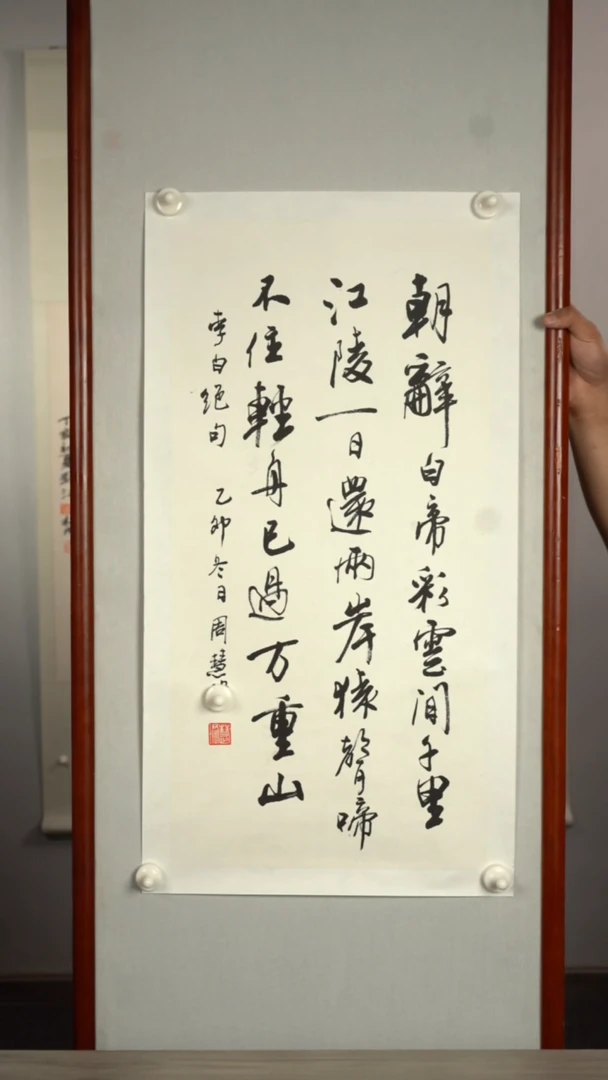 朝辭白帝彩雲間千里
江陵一日還兩岸猿聲啼
不住輕舟已過万重山
李白絕句 乙卯冬日周慧